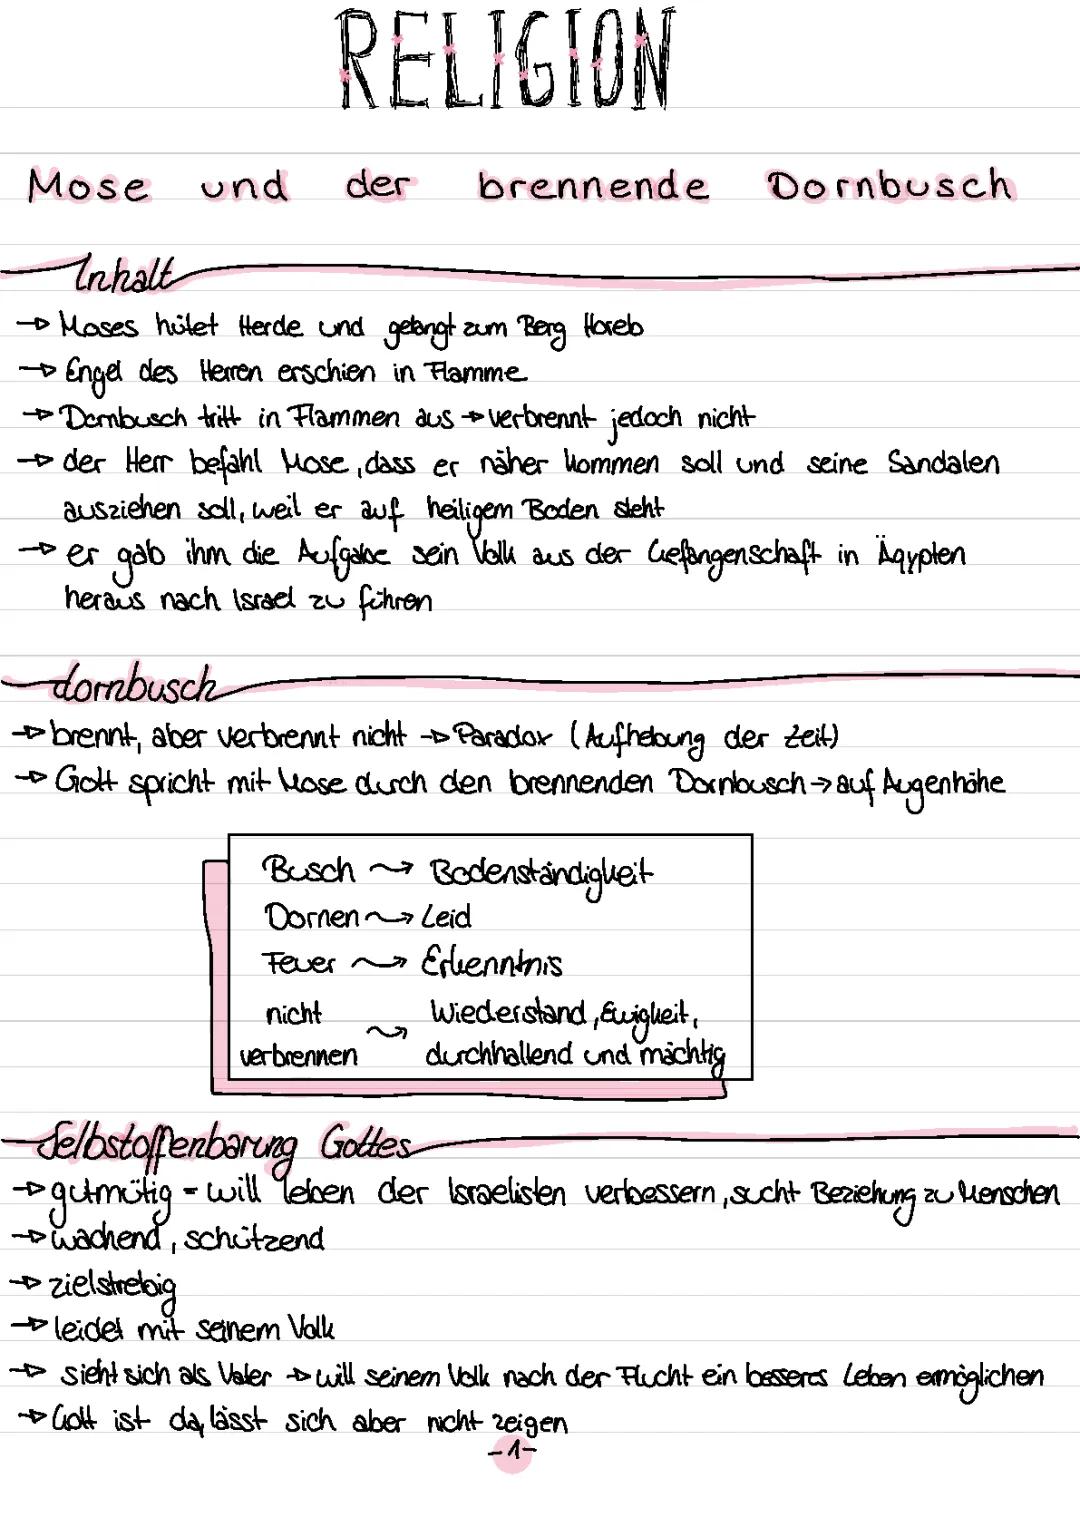 RELIGION
Mose und der brennende Dornbusch
Inhalt
→ Moses hütet Herde und gelangt zum Berg Horeb
→ Engel des Herren erschien in Flamme
→ Dornbusch tritt in Flammen aus → verbrennt jedoch nicht
→ der Herr befahl Mose, dass er näher kommen soll und seine Sandalen
ausziehen soll, weil er auf heiligem Boden steht
→ er gab ihm die Aufgabe sein Volk aus der Gefangenschaft in Ägypten
heraus nach Israel zu führen
dornbusch
→ brennt, aber verbrennt nicht → Paradox (Aufhebung der Zeit)
→ Gott spricht mit Mose durch den brennenden Dornbusch → auf Augenhöhe
Busch ⇝ Bodenständigkeit
Dornen ⇝ Leid
Feuer ⇝ Erkenntnis
nicht Wiederstand, Ewigkeit,
verbrennen ⇝ durchhaltend und mächtig
Selbstoffenbarung Gottes
→ gutmütig = will leben der Israelisten verbessern, sucht Beziehung zu Menschen
→ wachend, schützend
→ zielstrebig
→ leidet mit seinem Volk
→ sieht sich als Vater → will seinem Volk nach der Flucht ein besseres Leben ermöglichen
→ Gott ist da, lässt sich aber nicht zeigen
-1-